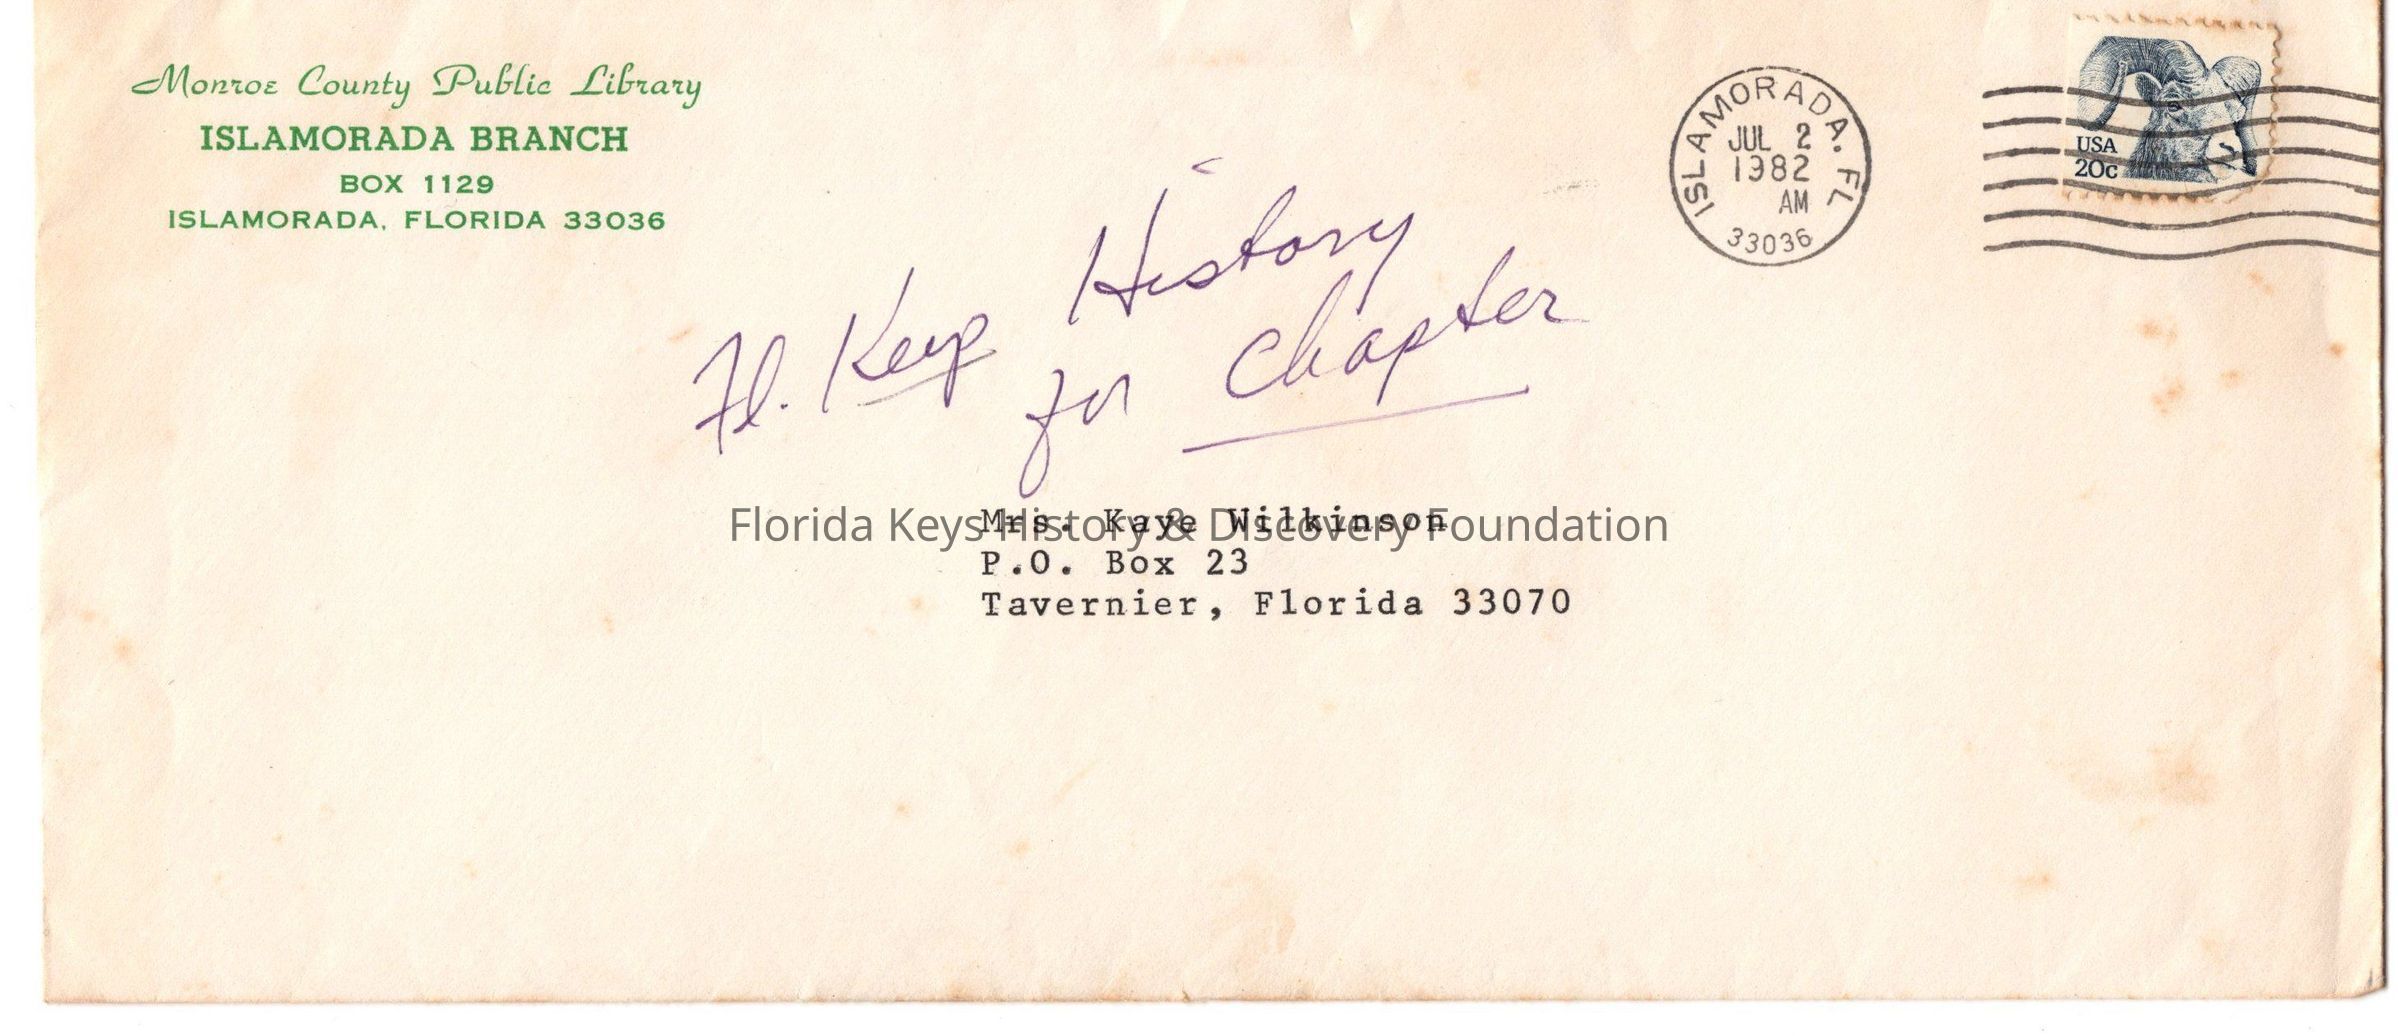 Monroe County Public Library
ISLAMORADA BRANCH
BOX 1129
ISLAMORADA, FLORIDA 33036
ISLAMORADA. FL
JUL 2
1982
AM
33036
USA
20c
Fl. Keys History
for Chapter
Florida Keys History & Discovery Foundation
Mrs. Kaye Wilkinson
P.O. Box 23
Tavernier, Florida 33070